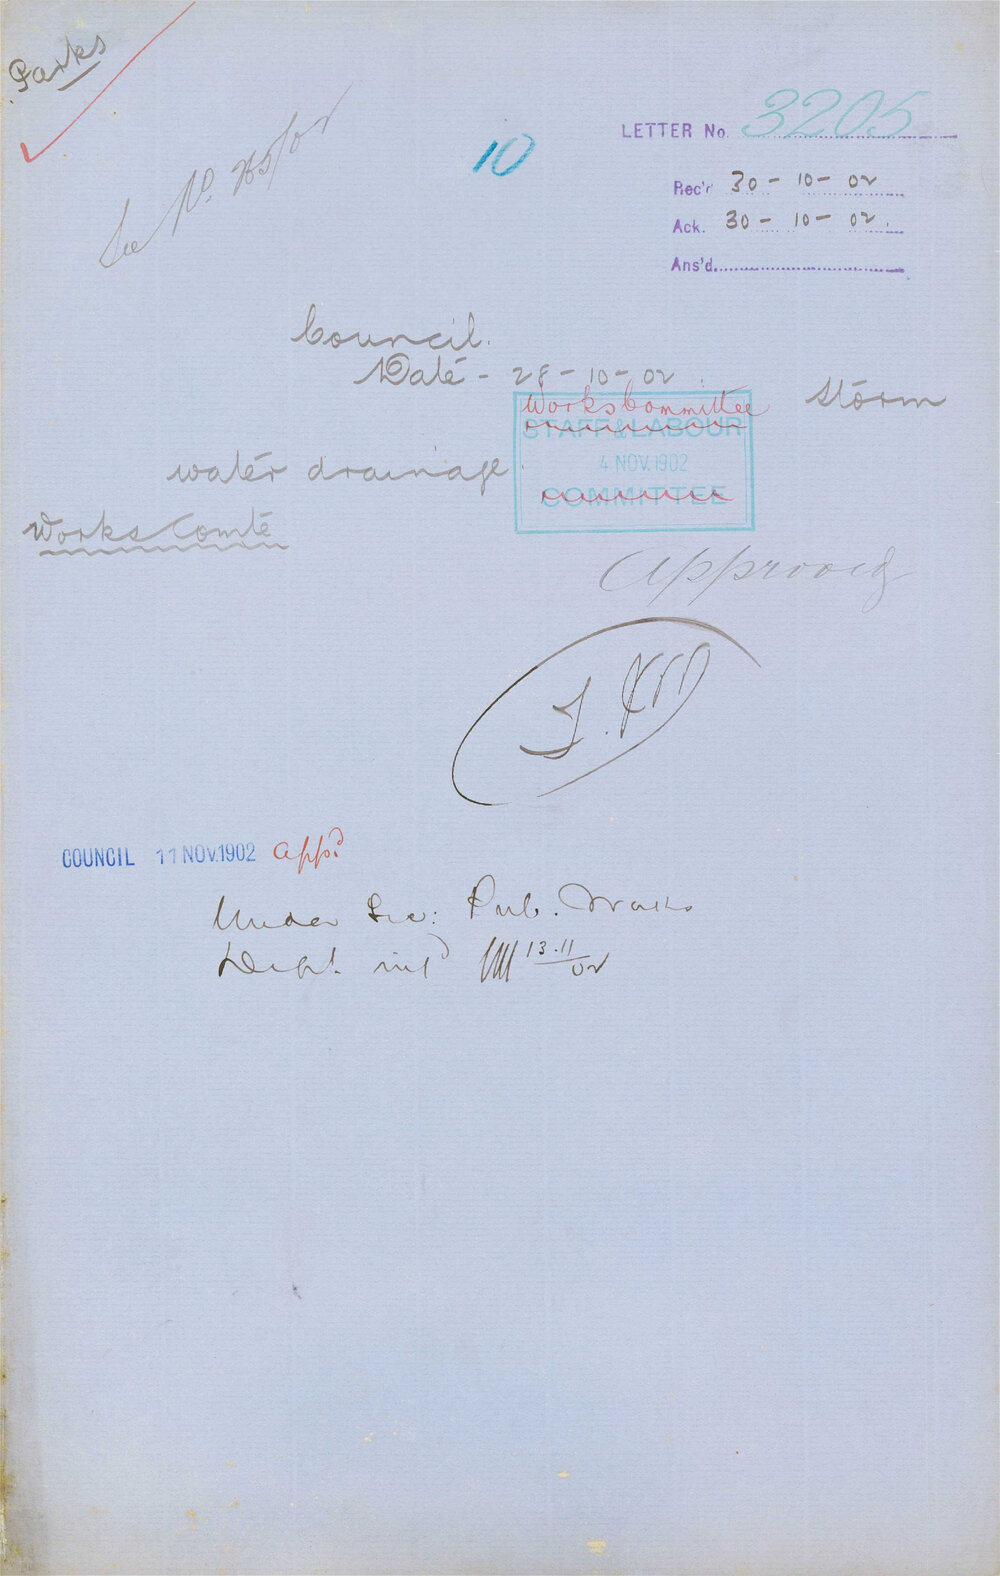 Parks
See No.
10
LETTER No. 3205
Rec'd 30-10-02
Ack. 30-10-02.
Ans'd
Council.
Date - 28-10-02.
Storm
Works Committee
STAFF & LABOUR
4 NOV. 1902
COMMITTEE
water drainage.
Works Comte
Approved
COUNCIL 11 NOV. 1902 appd
Under Sec: Pub. Works
Dept. infd 13.11/02